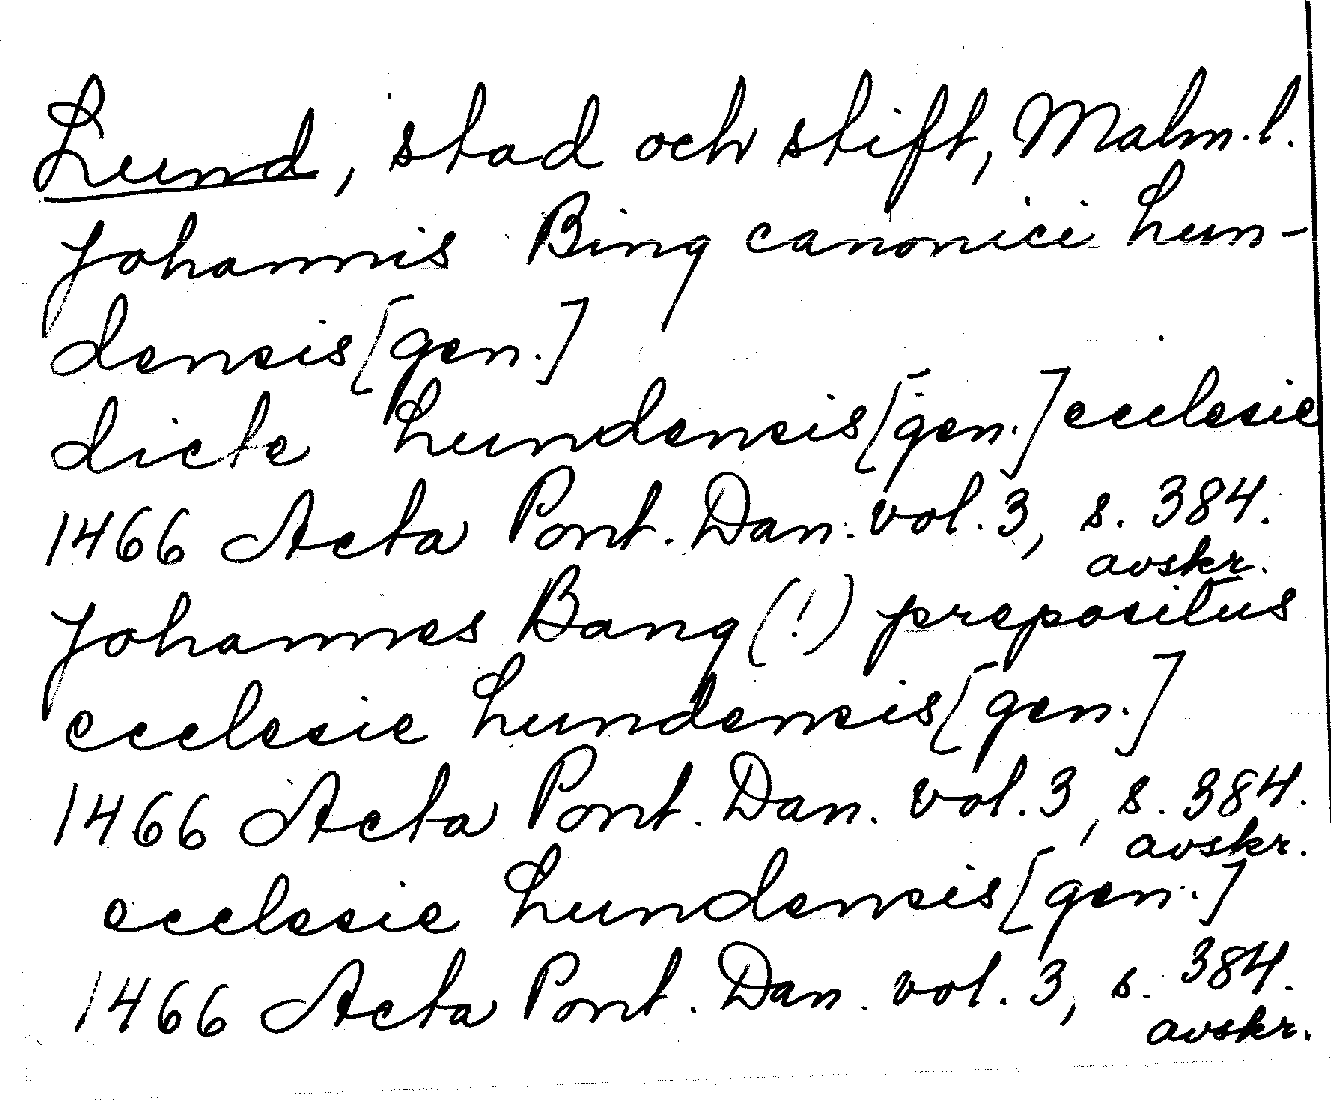 Lund, stad och stift, Malm.l.
Johannis Bing canonici Lun-
densis [gen.]
dicte Lundensis [gen.] ecclesie
1466 Acta Pont. Dan. vol. 3, s. 384.
avskr.
Johannes Bang (!) prepositus
ecclesie Lundensis [gen.]
1466 Acta Pont. Dan. vol. 3, s. 384.
avskr.
ecclesie Lundensis [gen.]
1466 Acta Pont. Dan. vol. 3, s. 384.
avskr.